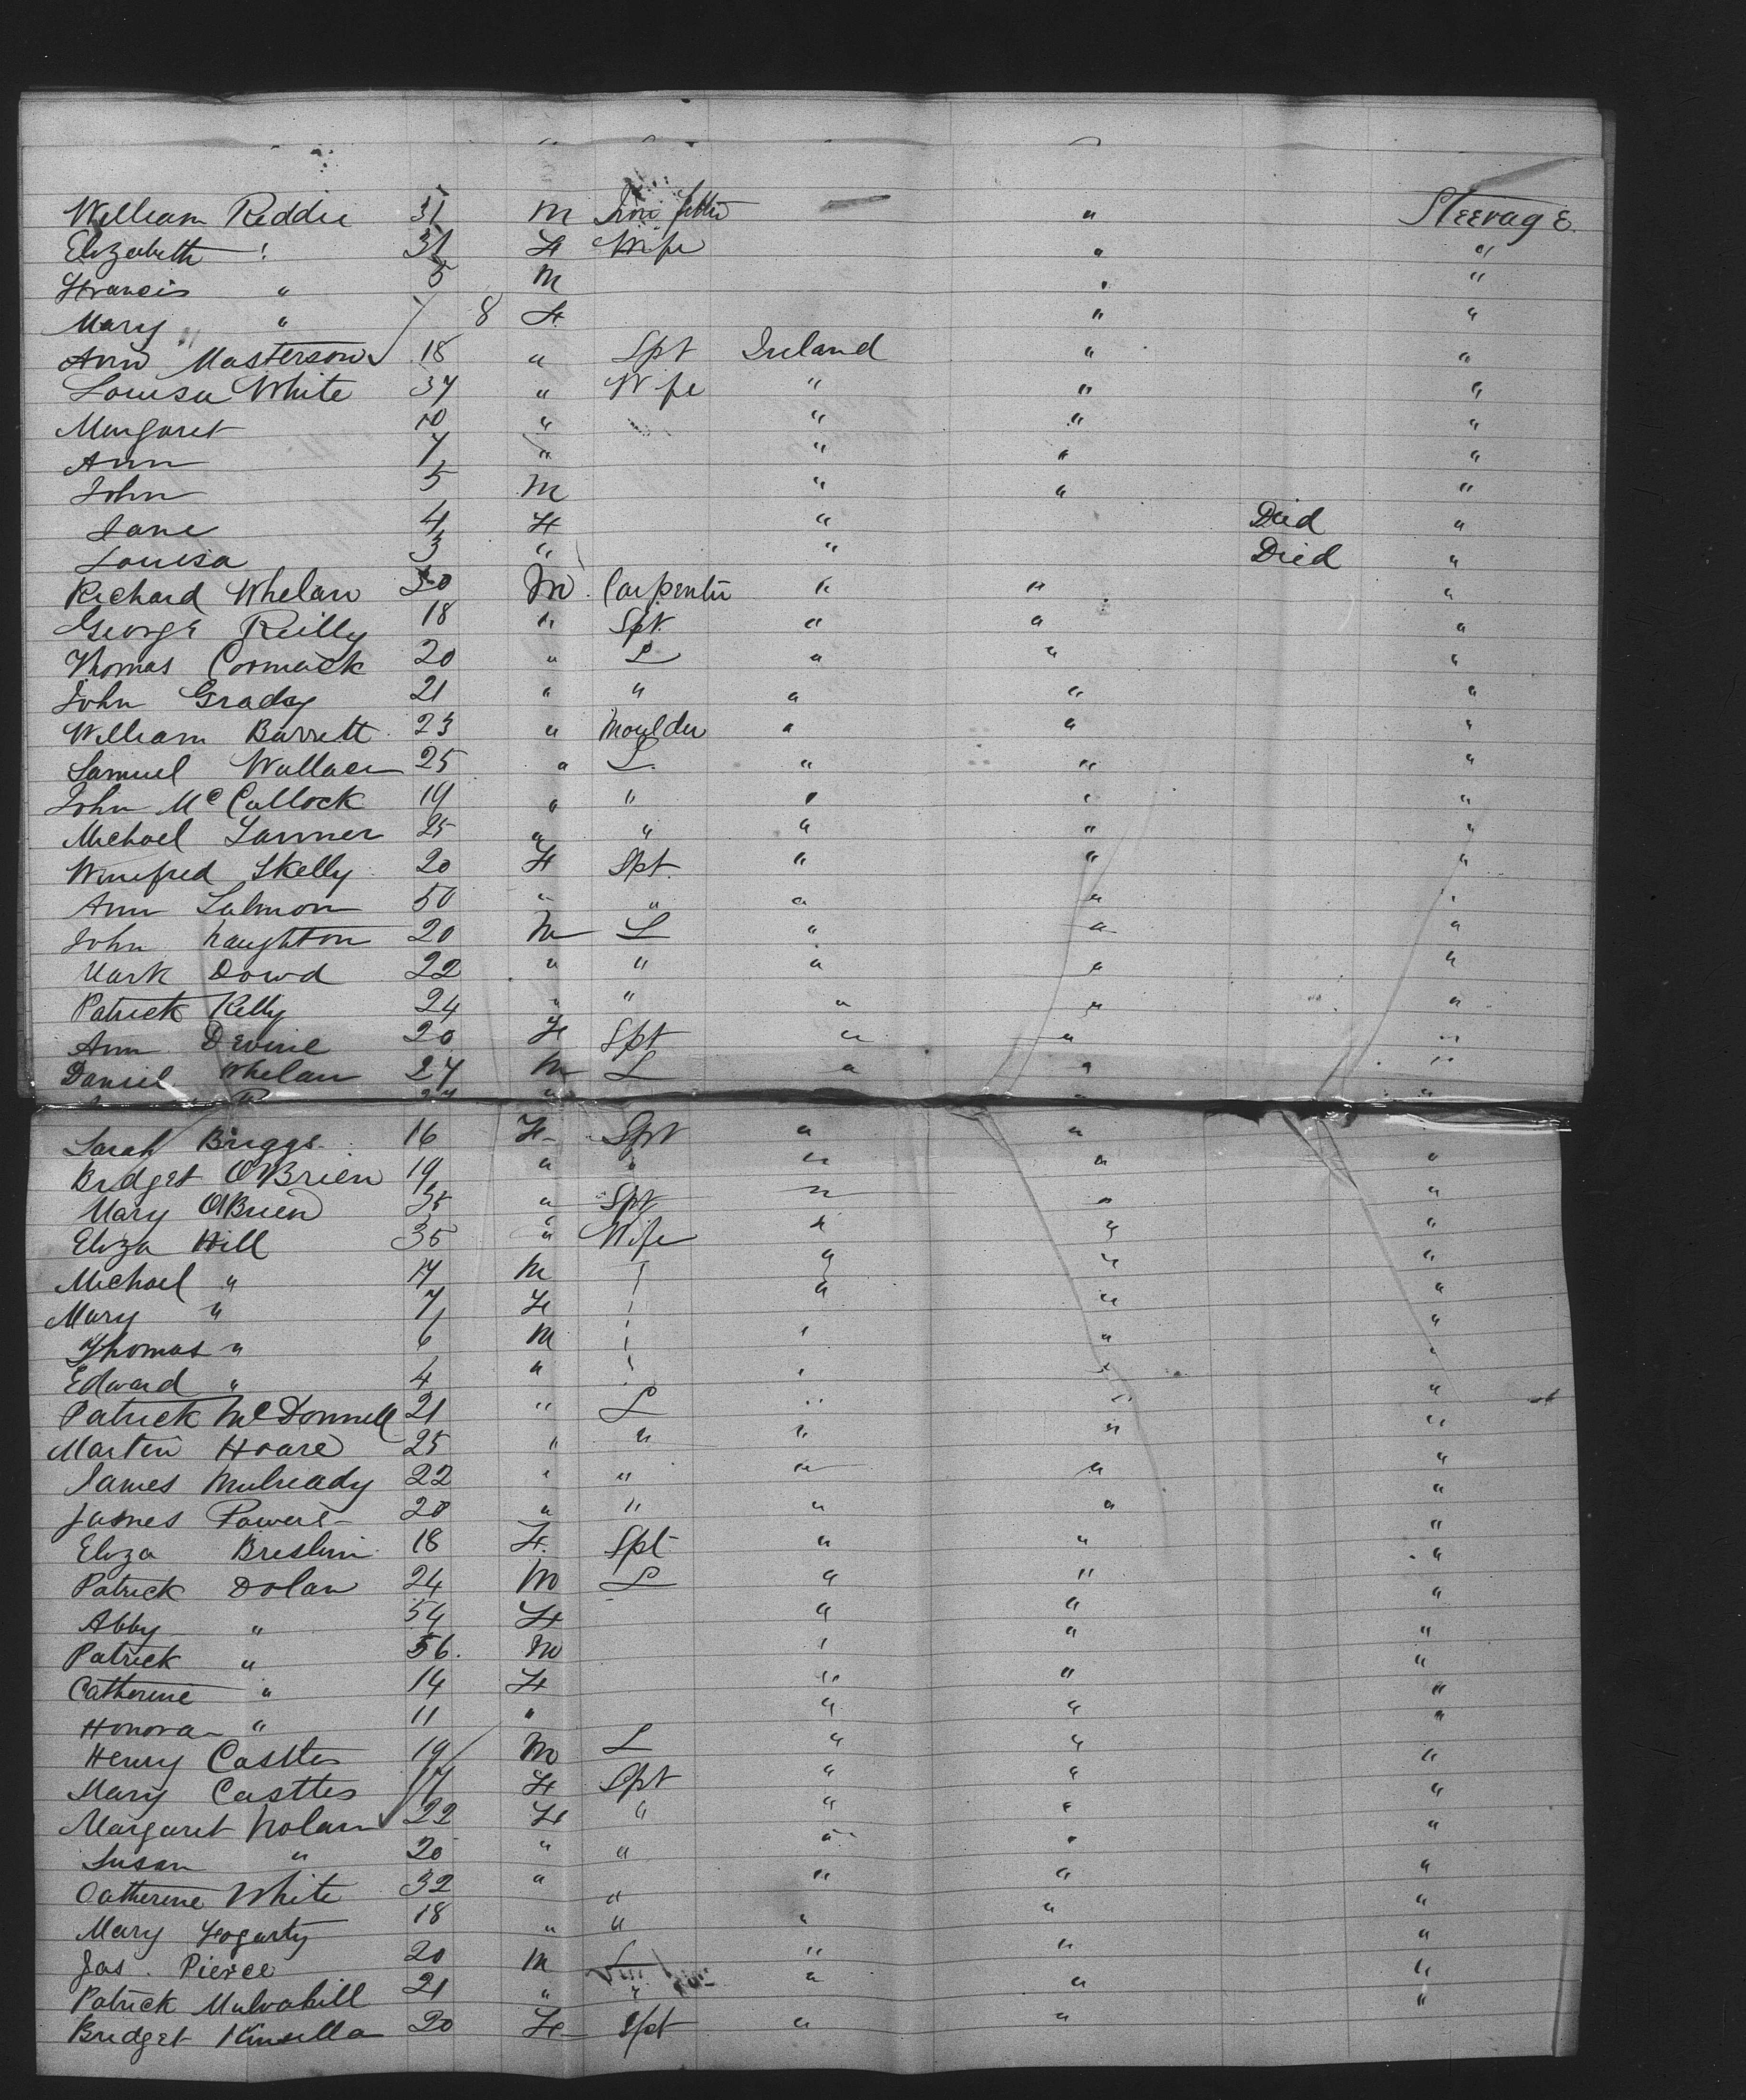 William Reddie 31 M Iron fitter — " Steerage
Elizabeth " 31 F Wife " "
Francis " 5 M " "
Mary " 8 F " "
Ann Masterson 18 " Spt Ireland " "
Louisa White 37 " Wife " " "
Margaret 10 " " " "
Ann 7 " " " "
John 5 M " " "
Jane 4 F " Died "
Louisa 3 " " Died "
Richard Whelan 30 M Carpenter " " "
George Reilly 18 " Spt. " " "
Thomas Cormack 20 " L " " "
John Grady 21 " " " " "
William Barrett 23 " Moulder " " "
Samuel Wallace 25 " L. " " "
John McCullock 19 " " " " "
Michael Larmer 25 " " " " "
Winefred Skelly 20 F Spt. " " "
Ann Salmon 50 " " " " "
John Naughton 20 M L " " "
Mark Dowd 22 " " " " "
Patrick Kelly 24 " " " " "
Ann Devine 20 F Spt " " "
Daniel Whelan 27 M L " " "
Sarah Briggs 16 F Spt " " "
Bridget O'Brien 19 " " " " "
Mary OBrien 35 " Spt " " "
Eliza Hill 35 " Wife " " "
Michael " 17 M " " "
Mary " 7 F " " "
Thomas " 6 M " " "
Edward " 4 " " " "
Patrick McDonnell 21 " L " " "
Martin Hoare 25 " " " " "
James Mulready 22 " " " " "
James Powers 20 " " " " "
Eliza Breslin 18 F. Spt " " "
Patrick Dolan 24 M L " " "
Abby " 54 F " " "
Patrick " 56. M " " "
Catherine " 14 F " " "
Honora " 11 " " " "
Henry Castles 19 M L " " "
Mary Castles 17 F Spt " " "
Margaret Nolan 22 F " " " "
Susan " 20 " " " " "
Catherine White 32 " " " " "
Mary Fogarty 18 " " " " "
Jas. Pierce 20 M L " " "
Patrick Mulvahill 21 " " " " "
Bridget Kinsella 20 F Spt " "